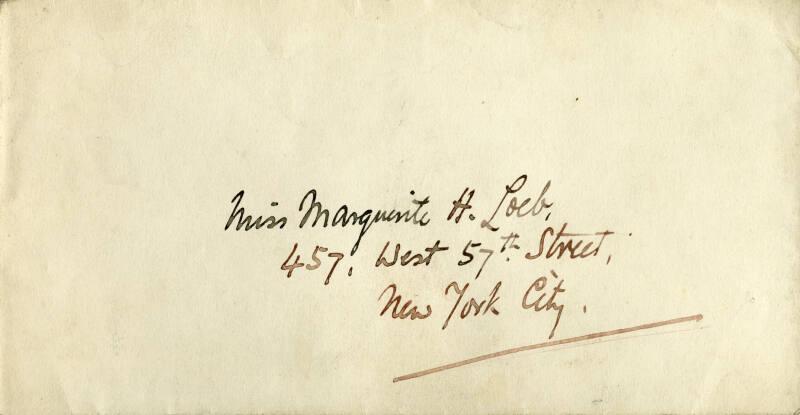 Miss Marguerite H. Loeb,
457, West 57th Street,
New York City.